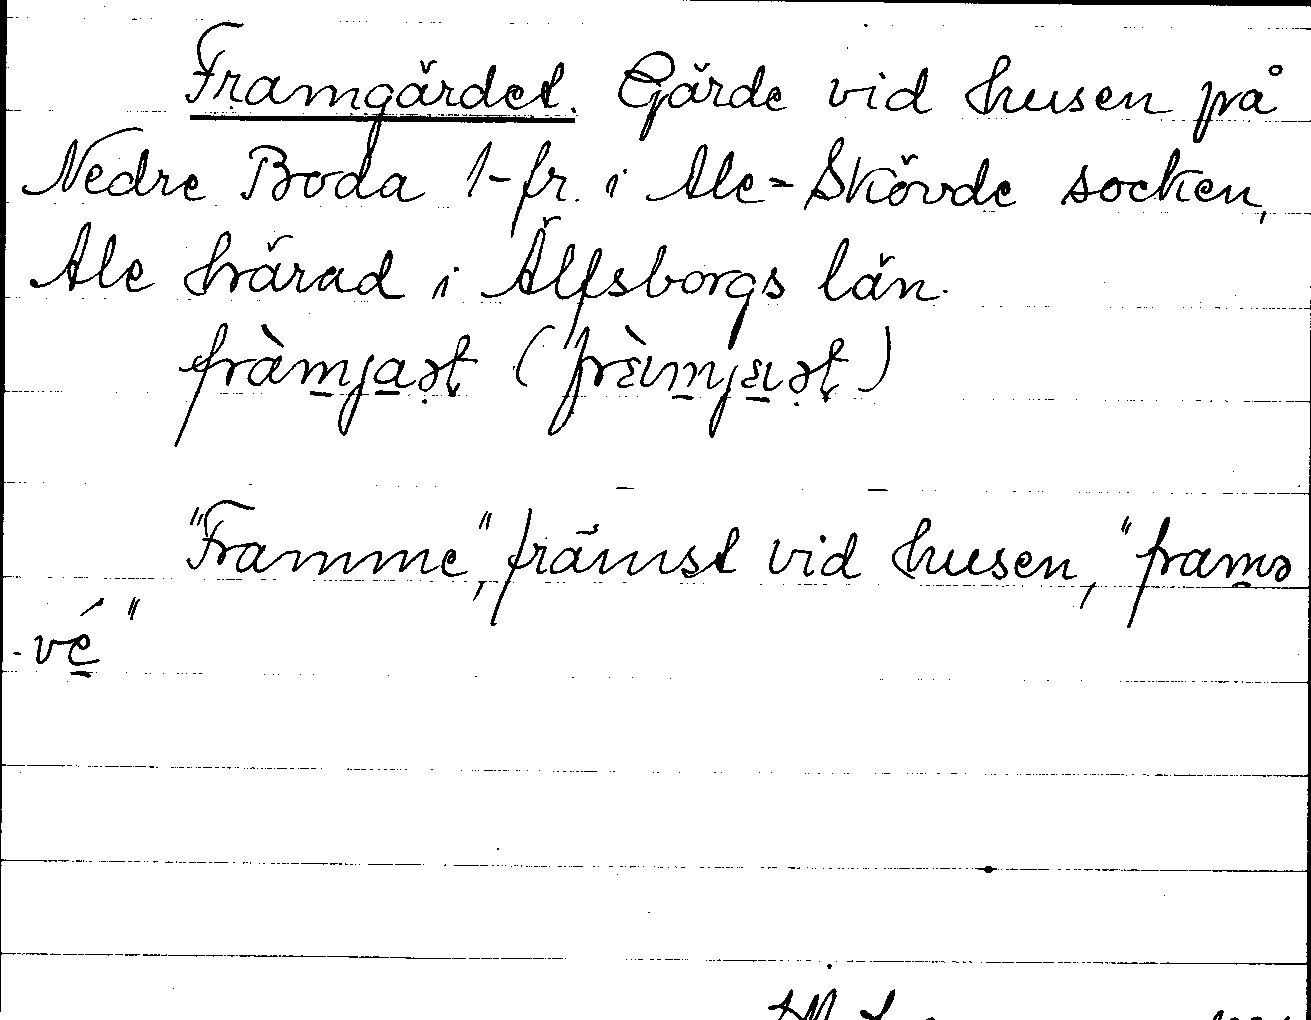 Framgärdet. Gärde vid husen på
Nedre Boda 1-fr. i Ale-Skövde socken,
Ale härad i Älfsborgs län.
"Framme", främst vid husen, "framə
vé"